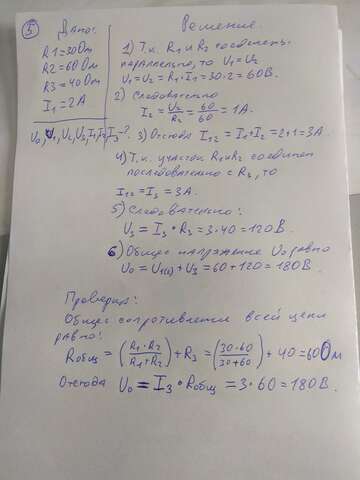 5
Дано:
R1=30Ом
R2=60Ом
R3=40Ом
I1=2A
U0, U1, U2, U3, I1, I2, I3-?
Решение
1) Т.к. R1 и R2 соединены
параллельно, то U1=U2
U1=U2=R1·I1=30·2=60В.
2) Следовательно
I2=U2/R2=60/60=1А.
3) Отсюда I12=I1+I2=2+1=3А.
4) Т.к. участок R1 и R2 соединен
последовательно с R3, то
I12=I3=3А.
5) Следовательно:
U3=I3·R3=3·40=120В.
6) Общее напряжение U0 равно
U0=U1(2)+U3=60+120=180В.
Проверка:
Общее сопротивление всей цепи
равно:
Rобщ=(R1·R2/R1+R2)+R3=(30·60/30+60)+40=60Ом
Отсюда U0=I3·Rобщ=3·60=180В.